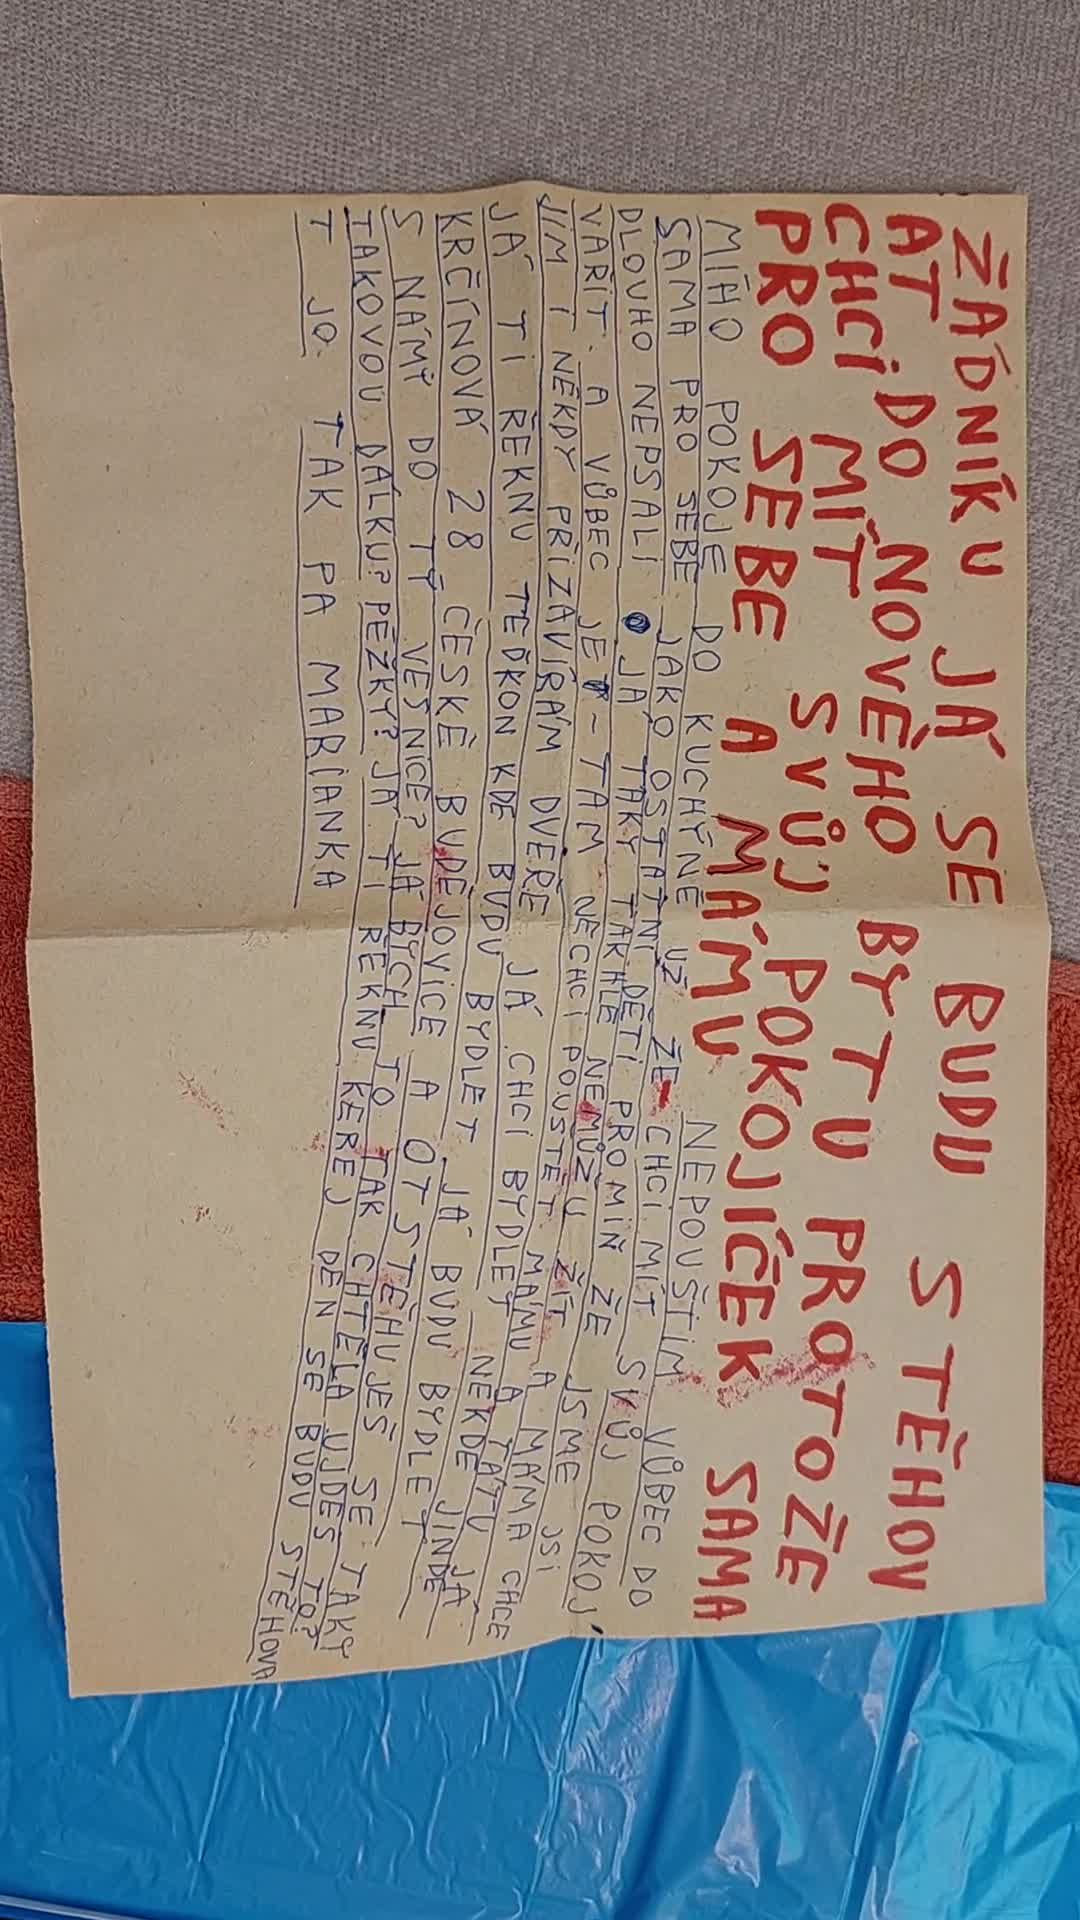 ŽÁDNÍKU JÁ SE BUDU STĚHOV
AT DO NOVÉHO BYTU PROTOŽE
CHCI MÍT SVŮJ POKOJÍČEK SAMA
PRO SEBE A MÁMU
MÍHO POKOJE DO KUCHYNĚ UŽ NEPOUŠTÍM VŮBEC DO
SAMA PRO SEBE JAKO OSTATNÍ DĚTI CHCI MÍT SVŮJ POKOJ
DLOUHO NEPSALI JÁ TAKY TAKHLE PROMIŇ ŽE JSME JSI
VAŘIT. A VŮBEC JE - TAM NECHCI POUŠTĚT MÁMU A MÁMA CHCE
JIM I NĚKDY PŘIZAVÍRÁM DVEŘE JÁ CHCI BYDLET A TÁTU JÁ
JÁ TI ŘEKNU TEĎKON KDE BUDU BYDLET NĚKDE JINDE
KRČÍNOVÁ 28 ČESKÉ BUDĚJOVICE JÁ BUDU BYDLET
S NÁMY DO TÝ VESNICE? JÁ BYCH TO TAK CHTĚLA UJDEŠ TO?
TAKOVOU DÁLKU? PĚŽKY? JÁ TI ŘEKNU KEREJ DEN SE BUDU STĚHOVA
T JO. TAK PA MARIANKA